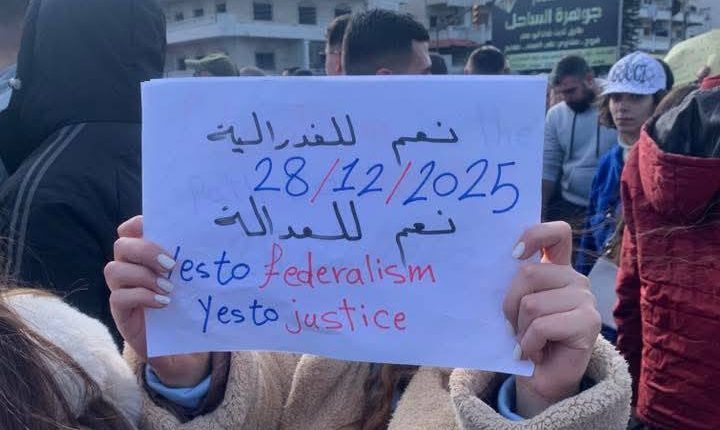 نعم للفدرالية
28/12/2025
نعم للعدالة
Yes to federalism
Yes to justice
جوهرة الساحل
GUCCI